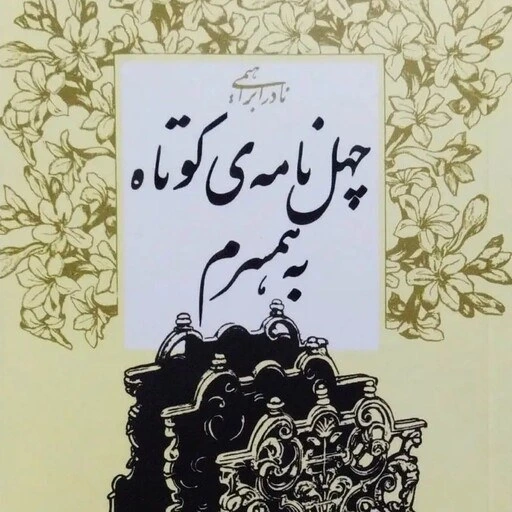 نادر ابراهیمی
چهل نامه‌ی کوتاه
به همسرم